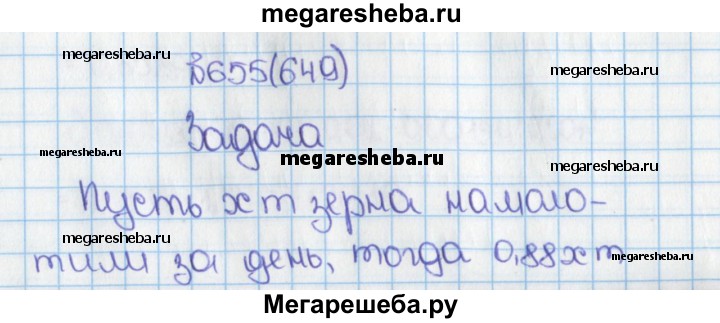 megaresheba.ru
megaresheba.ru
№655(649)
megaresheba.ru
Задача
megaresheba.ru
megaresheba.ru
megaresheba.ru
Пусть x т зерна намоло-
megaresheba.ru
тили за день, тогда 0,88x т
megaresheba.ru
Мегарешеба.ру